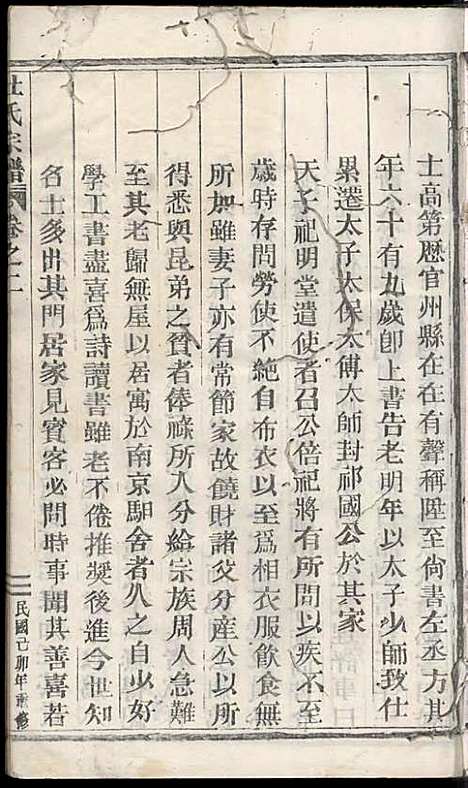 士高第歷官州縣在在有聲稱陞至尚書左丞方其
年六十有九歲卽上書告老明年以太子少師致仕
累遷太子太保太傅太師封祁國公於其家
天子祀明堂遣使者召公倍祀將有所問以疾不至
歲時存問勞使不絶自布衣以至爲相衣服飮食無
所加雖妻子亦有常節家故饒財諸父分産公以所
得悉與昆弟之貧者俸祿所入分給宗族周人急難
至其老歸無屋以居寓於南京馹舍者久之自少好
學工書畫喜爲詩讀書雖老不倦推奬後進今世知
名士多出其門居家見賓客必問時事聞其善喜若
杜氏宗譜 卷之二
二
民國己卯年重修